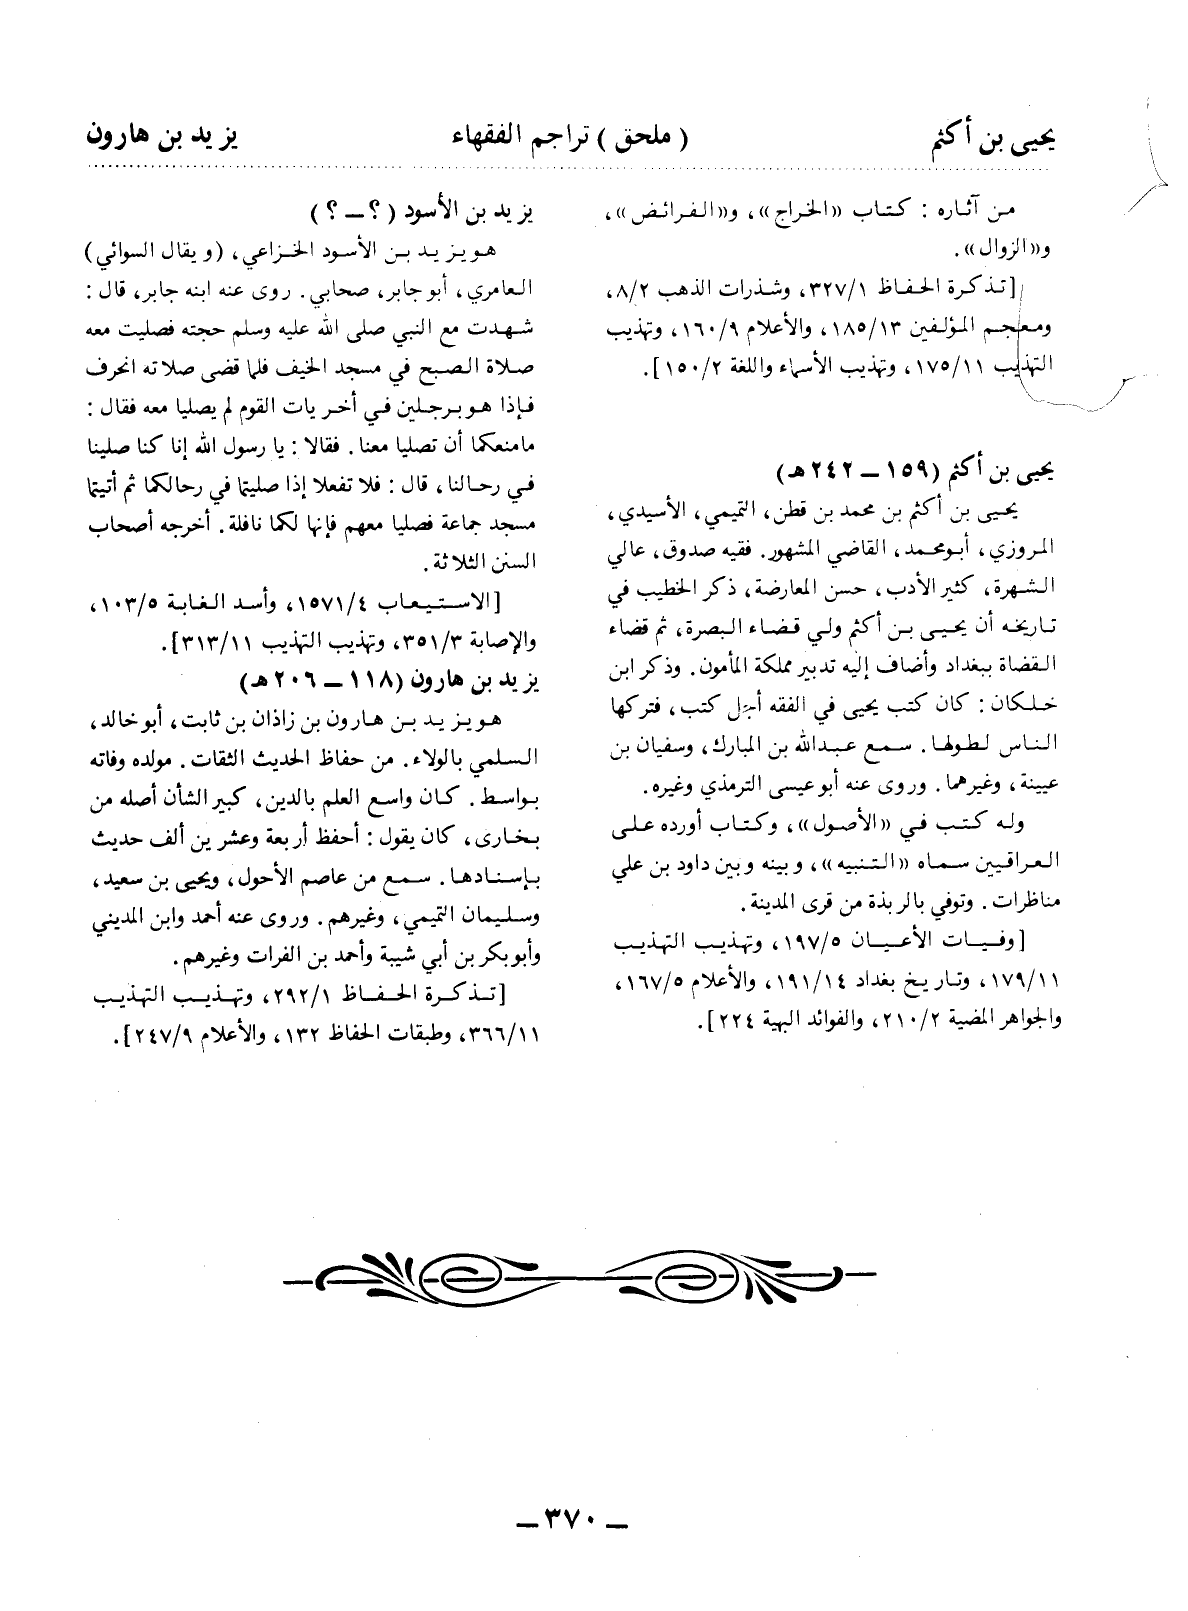 يحيى بن أكثم
( ملحق ) تراجم الفقهاء
يزيد بن هارون
من آثاره : كتاب «الخراج»، و«الفرائض»،
و«الزوال».
[تذكرة الحفاظ ٣٢٧/١، وشذرات الذهب ٨/٢،
ومعجم المؤلفين ١٨٥/١٣، والأعلام ١٦٠/٩، وتهذيب
التهذيب ١٧٥/١١، وتهذيب الأسماء واللغة ١٥٠/٢].
يحيى بن أكثم (١٥٩ ـ ٢٤٢ هـ)
يحيى بن أكثم بن محمد بن قطن، التميمي، الأسيدي،
المروزي، أبومحمد، القاضي المشهور. فقيه صدوق، عالي
الشهرة، كثير الأدب، حسن المعارضة، ذكر الخطيب في
تاريخه أن يحيى بن أكثم ولي قضاء البصرة، ثم قضاء
القضاة ببغداد وأضاف إليه تدبير مملكة المأمون. وذكر ابن
خلكان : كان كتب يحيى في الفقه أجل كتب، فتركها
الناس لطولها. سمع عبدالله بن المبارك، وسفيان بن
عيينة، وغيرهما. وروى عنه أبوعيسى الترمذي وغيره.
وله كتب في «الأصول»، وكتاب أورده على
العراقيين سماه «التنبيه»، وبينه وبين داود بن علي
مناظرات. وتوفي بالربذة من قرى المدينة.
[وفيات الأعيان ١٩٧/٥، وتهذيب التهذيب
١٧٩/١١، وتاريخ بغداد ١٩١/١٤، والأعلام ١٦٧/٥،
والجواهر المضية ٢١٠/٢، والفوائد البهية ٢٢٤].
يزيد بن الأسود (؟ ـ ؟)
هويزيد بن الأسود الخزاعي، (ويقال السوائي)
العامري، أبوجابر، صحابي. روى عنه ابنه جابر، قال :
شهدت مع النبي صلى الله عليه وسلم حجته فصليت معه
صلاة الصبح في مسجد الخيف فلما قضى صلاته انحرف
فإذا هوبرجلين في أخريات القوم لم يصليا معه فقال :
مامنعكما أن تصليا معنا. فقالا : يا رسول الله إنا كنا صلينا
في رحالنا، قال : فلا تفعلا إذا صليتما في رحالكما ثم أتيتما
مسجد جماعة فصليا معهم فإنها لكما نافلة. أخرجه أصحاب
السنن الثلاثة.
[الاستيعاب ١٥٧١/٤، وأسد الغابة ١٠٣/٥،
والإصابة ٣٥١/٣، وتهذيب التهذيب ٣١٣/١١].
يزيد بن هارون (١١٨ ـ ٢٠٦ هـ)
هويزيد بن هارون بن زاذان بن ثابت، أبوخالد،
السلمي بالولاء. من حفاظ الحديث الثقات. مولده وفاته
بواسط. كان واسع العلم بالدين، كبير الشأن أصله من
بخارى، كان يقول : أحفظ أربعة وعشرين ألف حديث
بإسنادها. سمع من عاصم الأحول، ويحيى بن سعيد،
وسليمان التميمي، وغيرهم. وروى عنه أحمد وابن المديني
وأبوبكر بن أبي شيبة وأحمد بن الفرات وغيرهم.
[تذكرة الحفاظ ٢٩٢/١، وتهذيب التهذيب
٣٦٦/١١، وطبقات الحفاظ ١٣٢، والأعلام ٢٤٧/٩].
ـ ٣٧٠ ـ